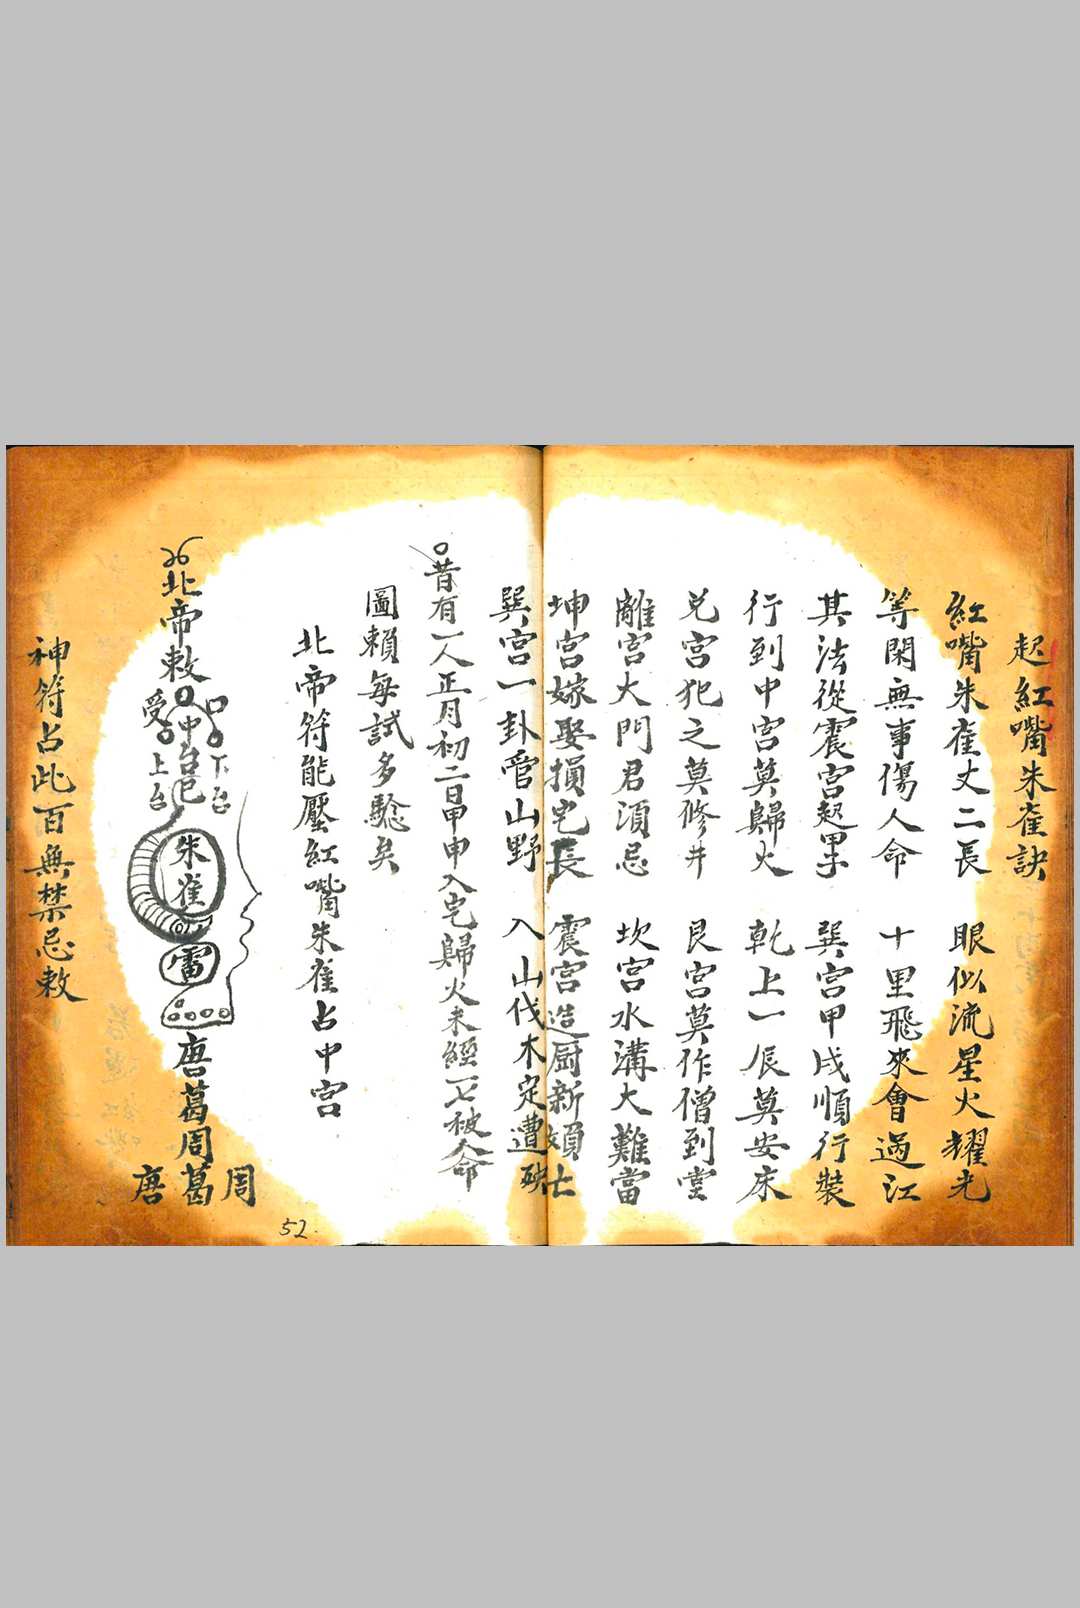 起紅嘴朱雀訣
紅嘴朱雀丈二長 眼似流星火耀光
等閑無事傷人命 十里飛來會過江
其法從震宮起甲子 巽宮甲戌順行裝
行到中宮莫歸火 乾上一辰莫安床
兑宮犯之莫修井 艮宮莫作僧到堂
離宮大門君須忌 坎宮水溝大難當
坤宮嫁娶損宅長 震宮造厨新娘亡
巽宮一卦管山野 入山伐木定遭殃
昔有一人正月初二日甲申入宅歸火未經一七被人命
圖賴每試多騐矣
北帝符能壓紅嘴朱雀占中宮
北帝敕
受 上台
中台
下台
朱雀
雷
唐葛周
唐 葛 周
神符占此百無禁忌敕
52.